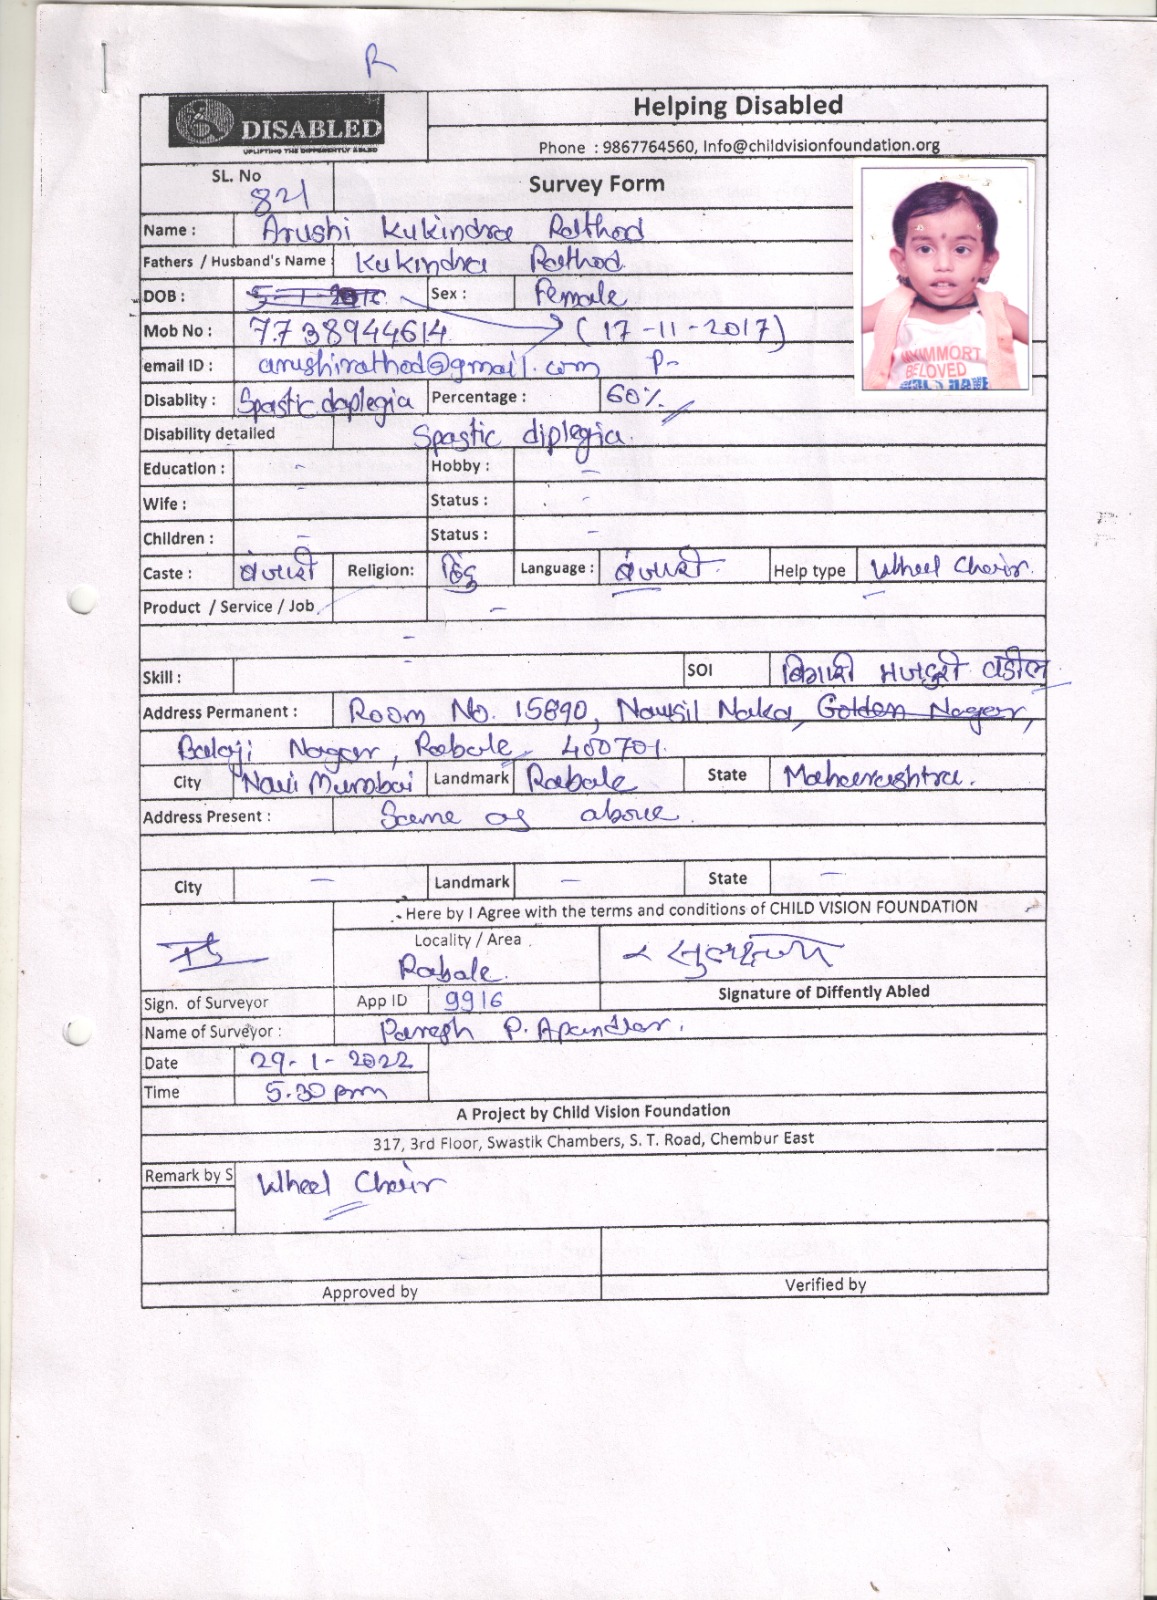 R
DISABLED
UPLIFTING THE DIFFERENTLY ABLED
Helping Disabled
Phone : 9867764560, Info@childvisionfoundation.org
SL. No 821
Survey Form
Name : Arushi Kukindra Rathod
Fathers / Husband's Name : Kukindra Rathod.
DOB : Sex : Female
Mob No : 7738944614 (17-11-2017)
email ID : arushirathod@gmail.com P-
Disablity : Spastic daplegia Percentage : 60%
Disability detailed Spastic diplegia.
Education : - Hobby : -
Wife : - Status : -
Children : - Status : -
Caste : बंजारी Religion: हिंदु Language : बंजारी. Help type Wheel Chair.
Product / Service / Job -
-
Skill : - SOI बिगारी मजदुरी वडील
Address Permanent : Room No. 15890, Nausil Naka, Golden Nagar,
Balaji Nagar, Rabale, 400701.
City Navi Mumbai Landmark Rabale State Maharashtra.
Address Present : Same as above.
City - Landmark - State -
Here by I Agree with the terms and conditions of CHILD VISION FOUNDATION
Locality / Area
Rabale.
Sign. of Surveyor App ID 9916 Signature of Diffently Abled
Name of Surveyor : Paresh P.
Date 29-1-2022
Time 5.30 pm
A Project by Child Vision Foundation
317, 3rd Floor, Swastik Chambers, S. T. Road, Chembur East
Remark by S Wheel Chair
Approved by Verified by